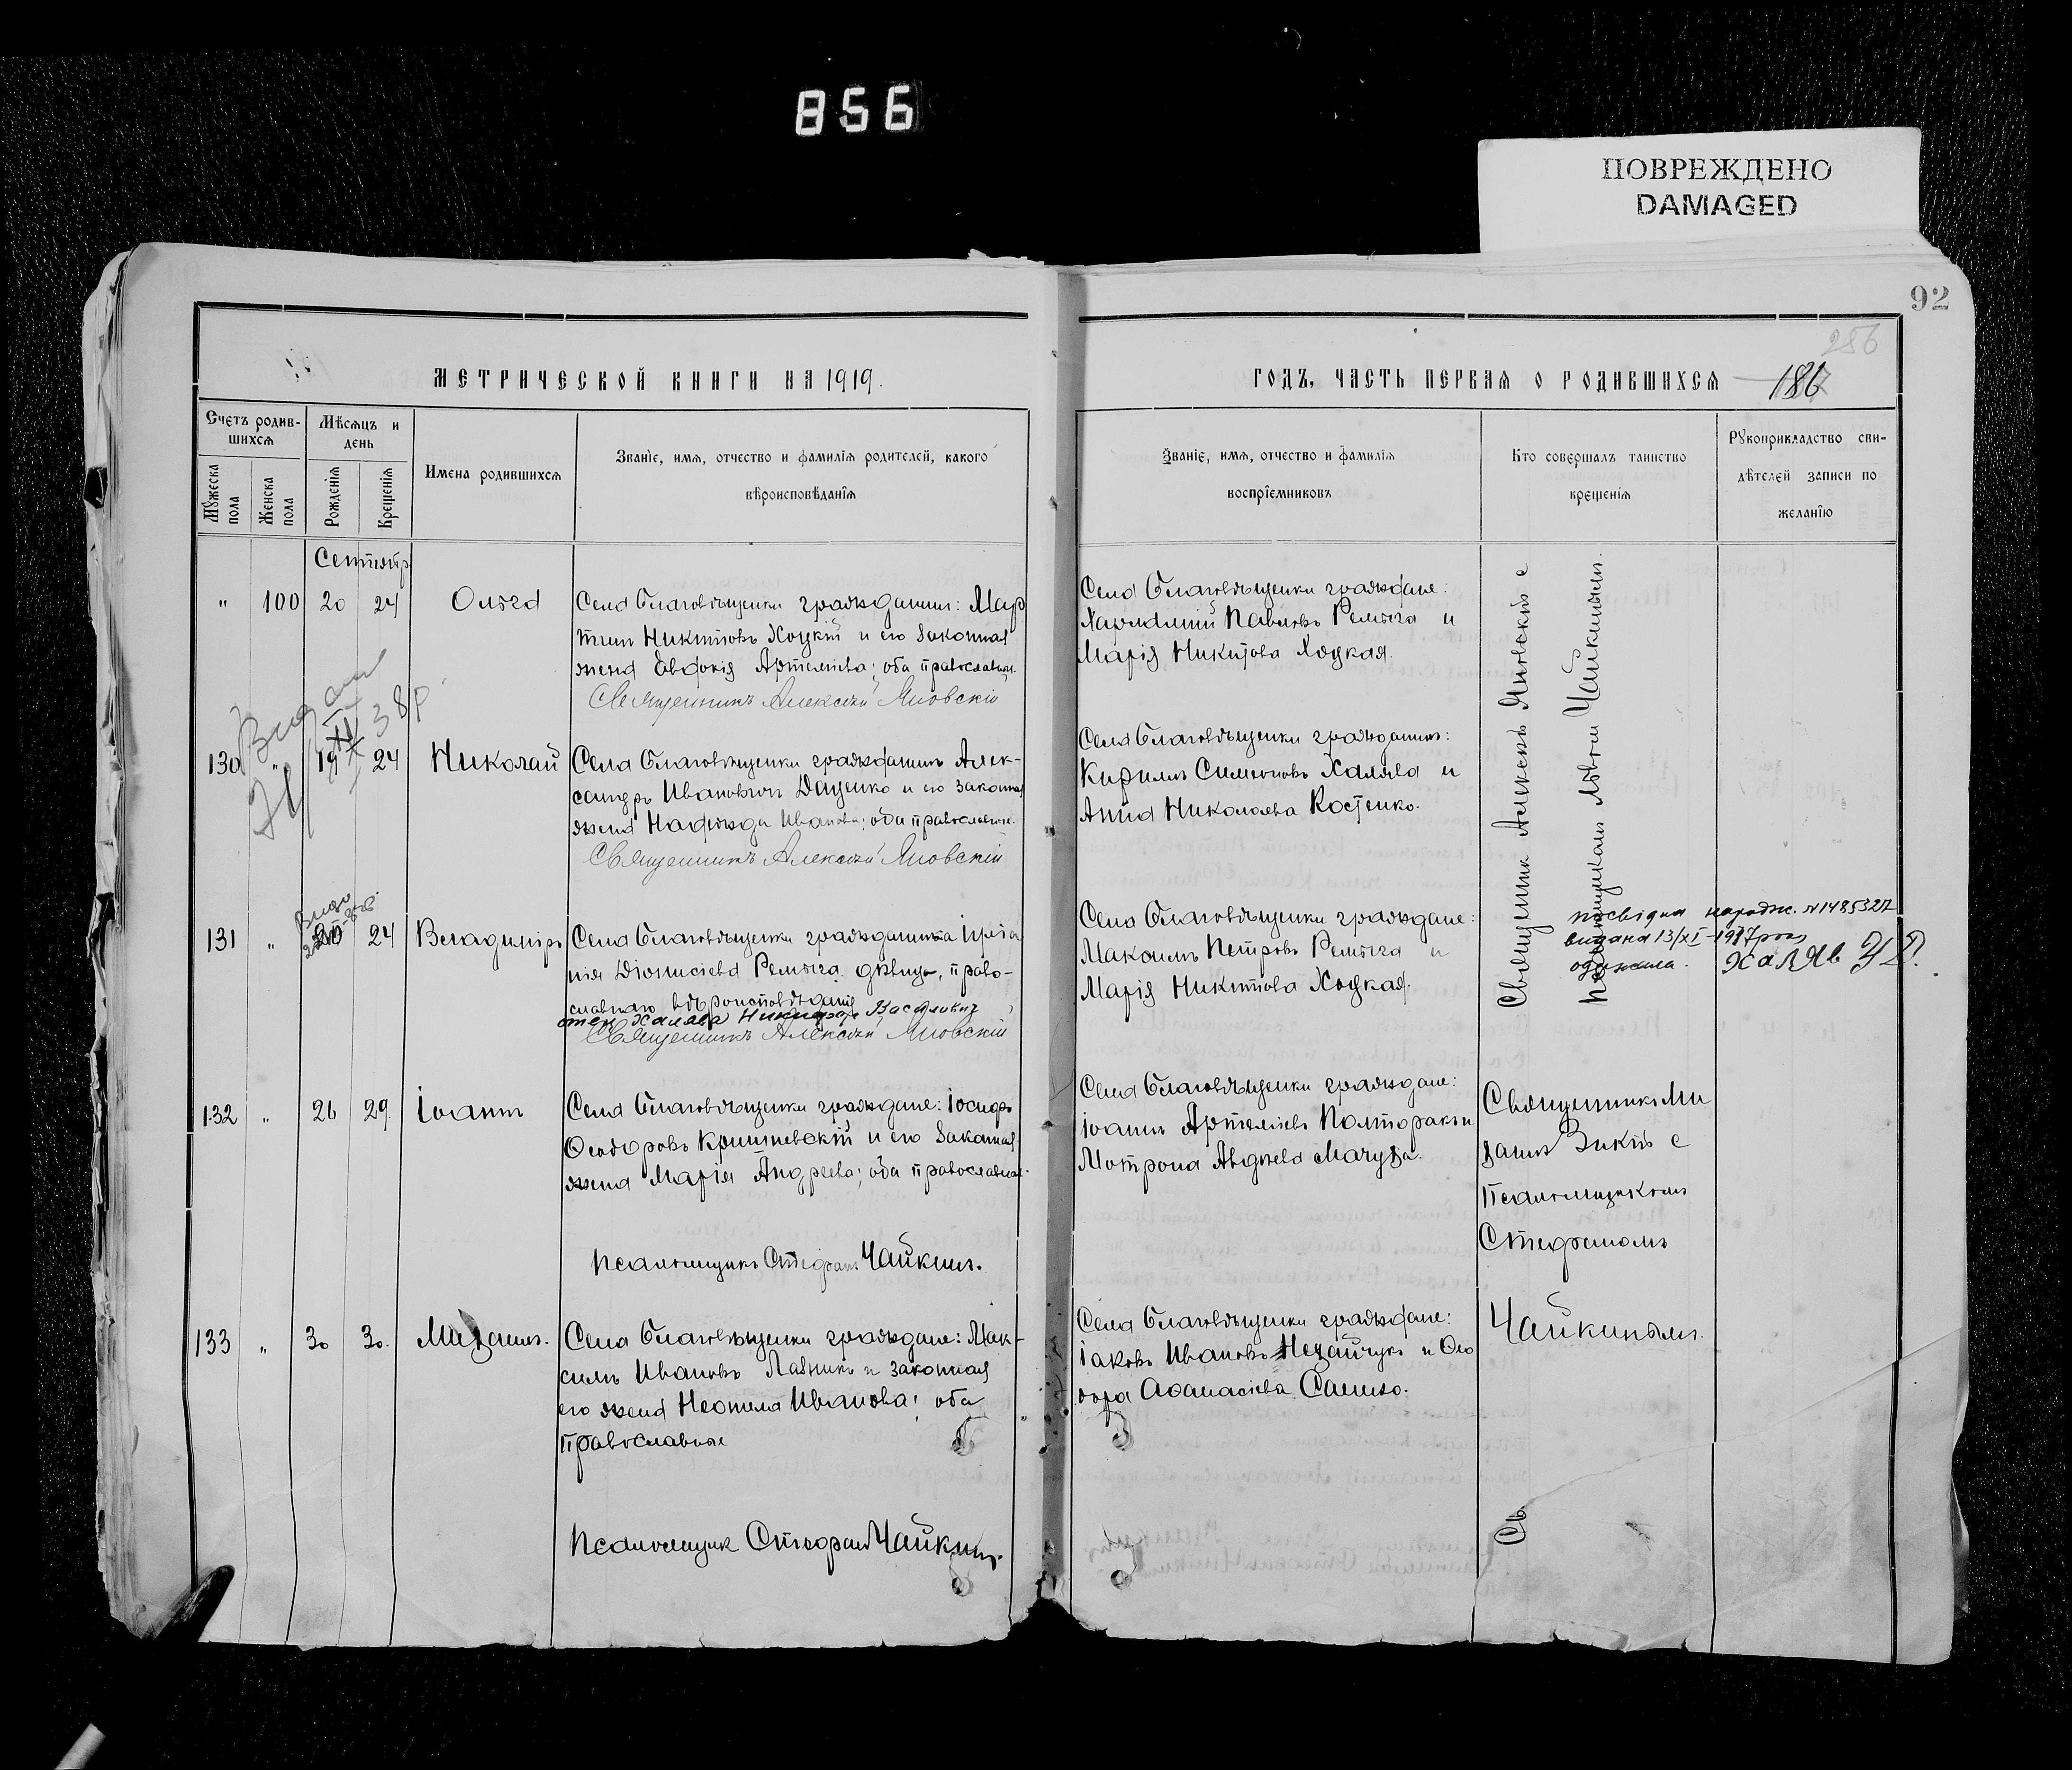 856
ПОВРЕЖДЕНО
DAMAGED
92
286
МЕТРИЧЕСКОЙ КНИГИ НА 1919.
ГОДЪ, ЧАСТЬ ПЕРВАЯ О РОДИВШИХСЯ
186
Счетъ родив-
шихся
Мѣсяцъ и
день
Мужеска
пола
Женска
пола
Рожденія
Крещенія
Имена родившихся
Званіе, имя, отчество и фамилія родителей, какого
вѣроисповѣданія
Званіе, имя, отчество и фамилія
воспріемниковъ
Кто совершалъ таинство
крещенія
Рукоприкладство сви-
дѣтелей записи по
желанію
Сентябр
" 100 20 24 Ольга
Села Благовѣщенки гражданинъ: Мар
тинъ Никитовъ Хоцкій и его законная
жена Евдокія Артеміева; оба православн.
Священникъ Алексѣй Яновскій
Села Благовѣщенки граждане:
Харлампій Павловъ Ремыга и
Марія Никитова Хоцкая.
Священник Алексѣй Яновскій с
Псаломщикомъ Львом Чайкинымъ.
Видан
XI 38р
130 " 19 24 Николай
Села Благовѣщенки гражданинъ Алек-
сандръ Ивановичъ Даценко и его законная
жена Надежда Иванова; оба православные.
Священникъ Алексѣй Яновскій
Села Благовѣщенки гражданинъ:
Кириллъ Симеоновъ Халява и
Анна Николаева Костенко.
131 " 20 24 Владиміръ
Села Благовѣщенки гражданинка
Діонисіева Ремыга дѣвица, право-
славнаго вѣроисповѣданія
отец Халява Никифор Василович
Священникъ Алексѣй Яновскій
Села Благовѣщенки граждане:
Максимъ Петровъ Ремыга и
Марія Никитова Хоцкая.
посвідка народж. №1485327
видана 13/XI-1977 рок
одержала. Халяв
132 " 26 29. Іоаннъ
Села Благовѣщенки граждане: Іосифъ
Ѳеодоровъ Кришневскій и его законная
жена Марія Андреева; оба православные.
Псаломщикъ Стефанъ Чайкинъ.
Села Благовѣщенки граждане:
Іоаннъ Артеміевъ Полторакъ и
Мотрона Авдѣева Мачуза.
Священникъ Ми
хаилъ Зикѣ с
Псаломщикомъ
Стефаномъ
Чайкинымъ.
133 " 30 30. Михаилъ.
Села Благовѣщенки граждане: Мак-
симъ Ивановъ Лавникъ и законная
его жена Неонила Иванова; оба
православные
Псаломщик Стефан Чайкинъ.
Села Благовѣщенки граждане:
Іаковъ Ивановъ Нечайчукъ и Ѳео
дора Аѳанасіева Саенко.
Св